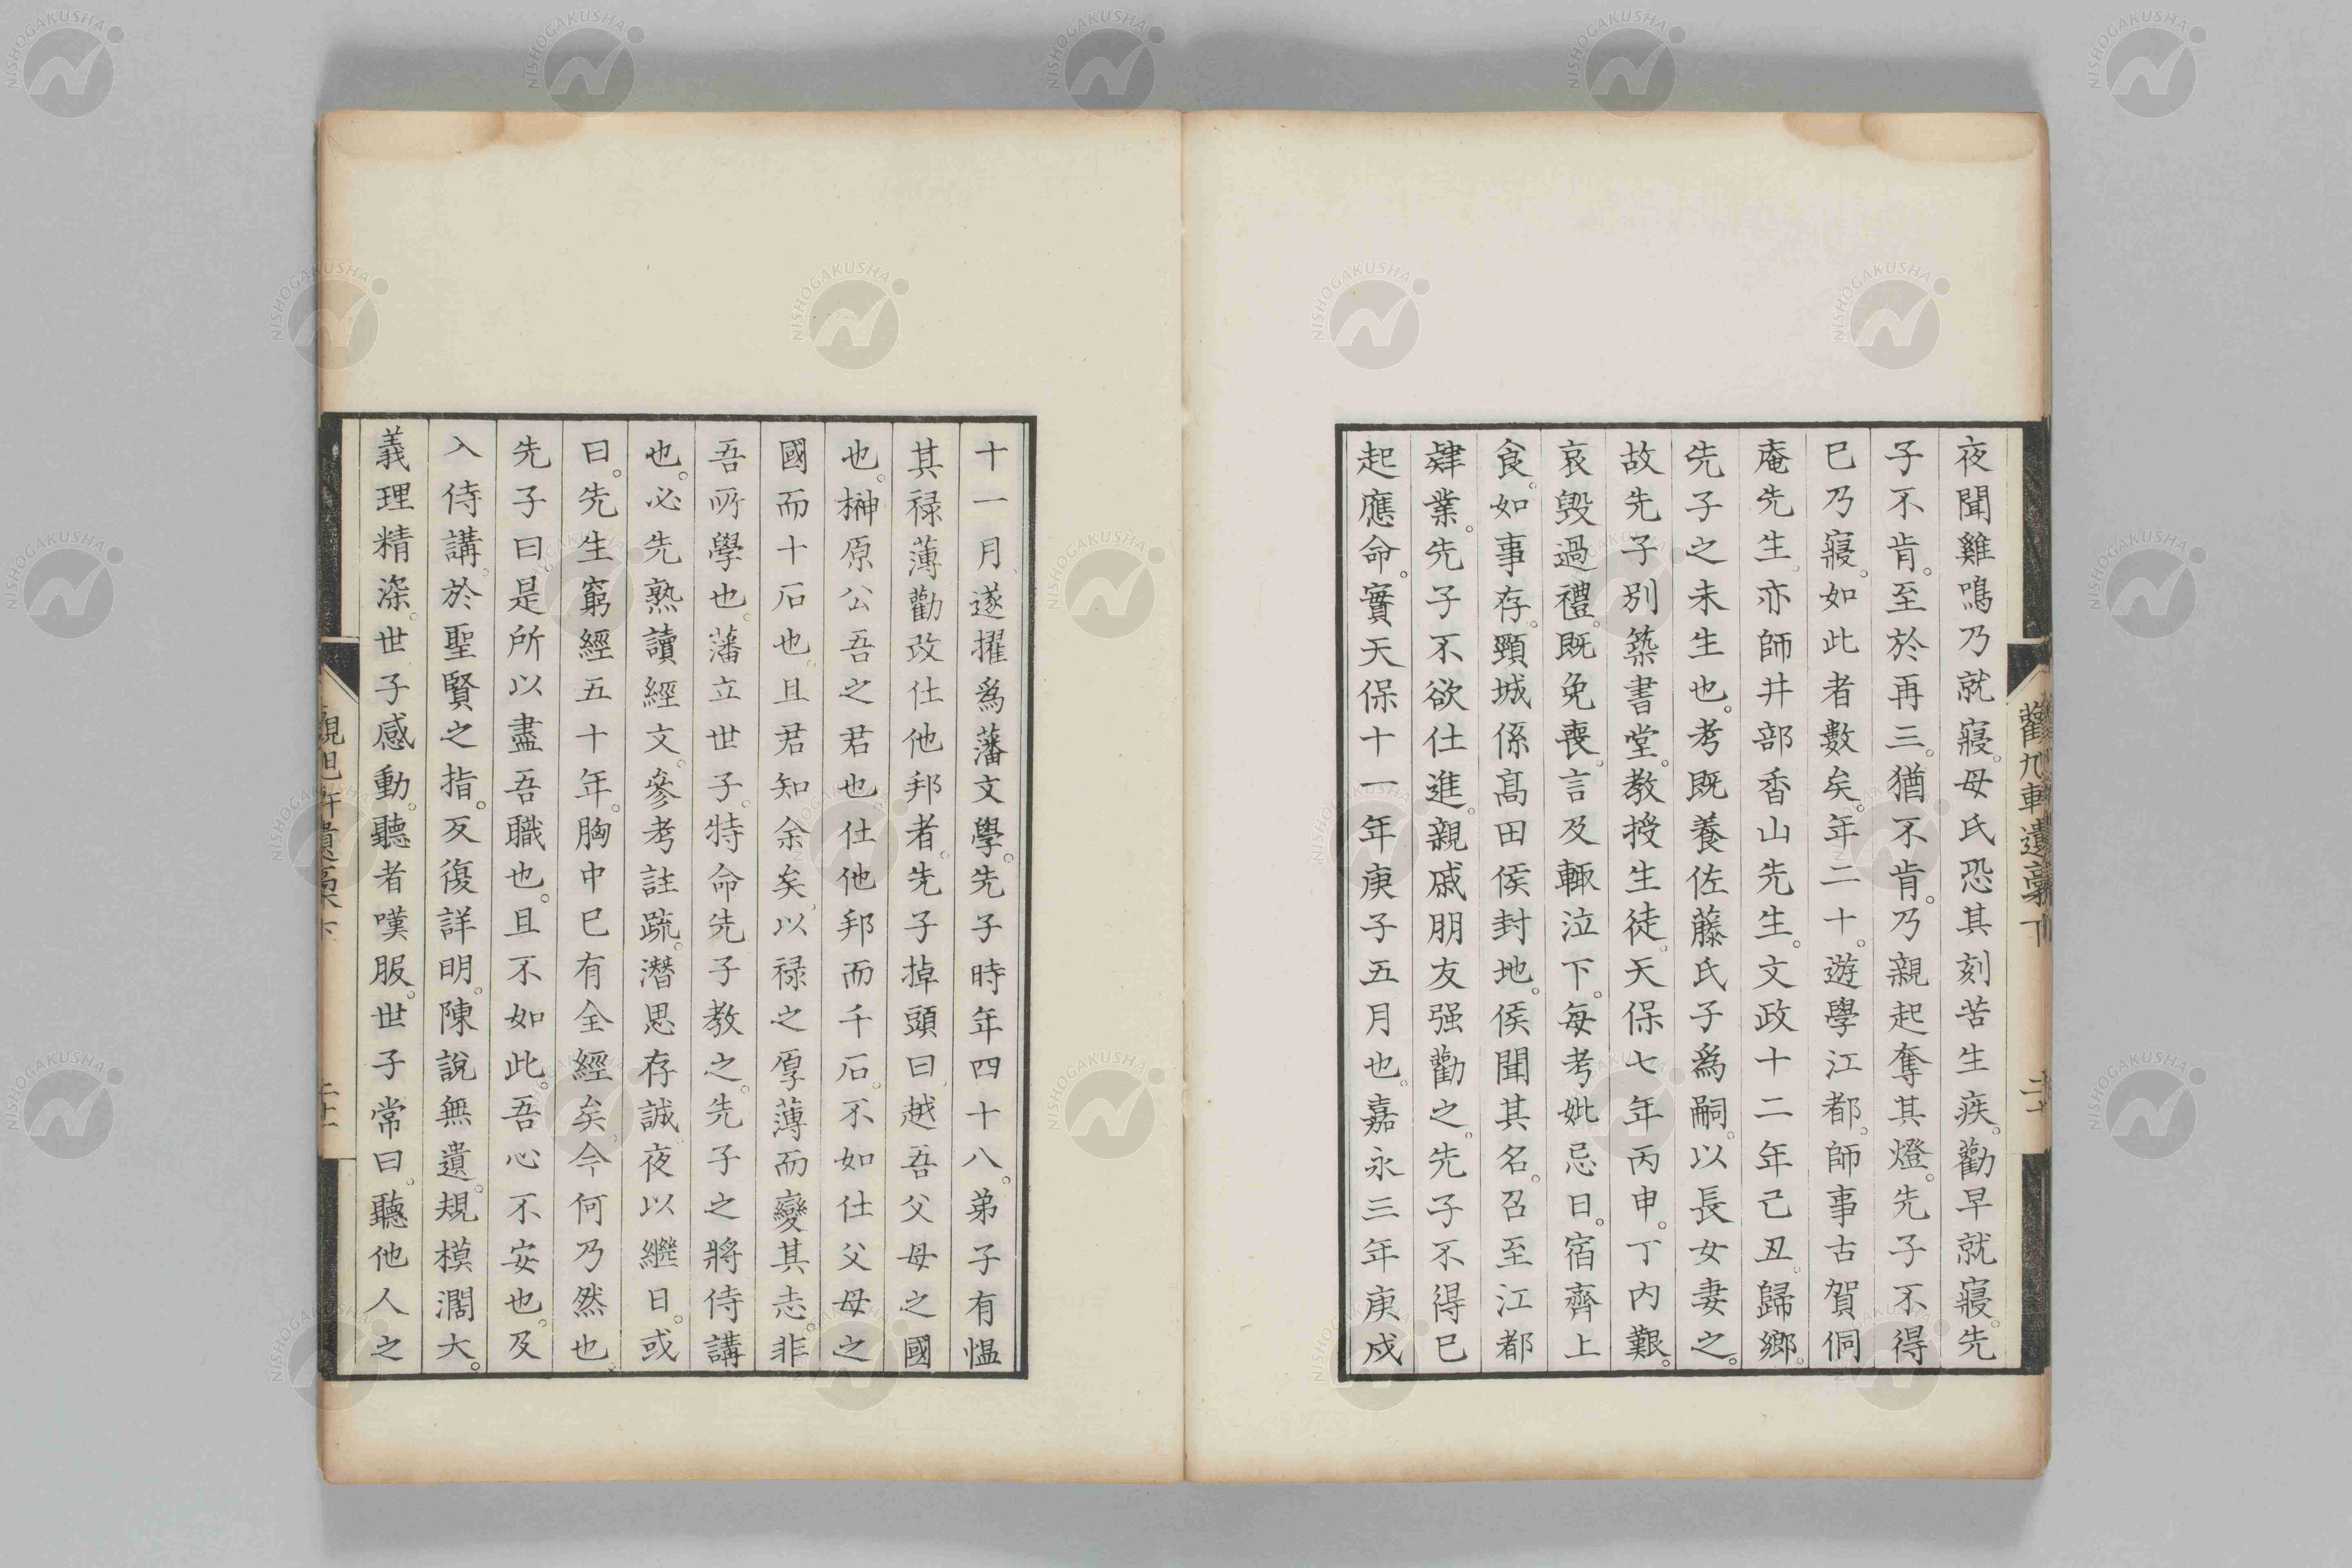 夜聞雞鳴乃就寢。母氏恐其刻苦生疾。勸早就寢。先
子不肯。至於再三。猶不肯。乃親起奪其燈。先子不得
已乃寢。如此者數矣。年二十。遊學江都。師事古賀侗
庵先生。亦師井部香山先生。文政十二年己丑。歸鄉。
先子之未生也。考既養佐藤氏子爲嗣。以長女妻之。
故先子別築書堂。教授生徒。天保七年丙申。丁內艱。
哀毀過禮。既免喪。言及輙泣下。每考妣忌日。宿齊上
食。如事存。頸城係髙田侯封地。侯聞其名。召至江都
肄業。先子不欲仕進。親戚朋友强勸之。先子不得已
起應命。實天保十一年庚子五月也。嘉永三年庚戌
十一月遂擢爲藩文學。先子時年四十八。弟子有愠
其禄薄勸改仕他邦者。先子掉頭曰。越吾父母之國
也。榊原公吾之君也。仕他邦而千石。不如仕父母之
國而十石也。且君知余矣。以禄之厚薄而變其志。非
吾所學也。藩立世子。特命先子教之。先子之將侍講
也。必先熟讀經文。參考註疏。潛思存誠。夜以繼日。或
曰。先生窮經五十年。胸中已有全經矣。今何乃然也
先子曰。是所以盡吾職也。且不如此。吾心不安也。及
入侍講。於聖賢之指。反復詳明。陳說無遺。規模濶大。
義理精深。世子感動。聽者嘆服。世子常曰。聽他人之
遺稾下
NISHOGAKUSHA